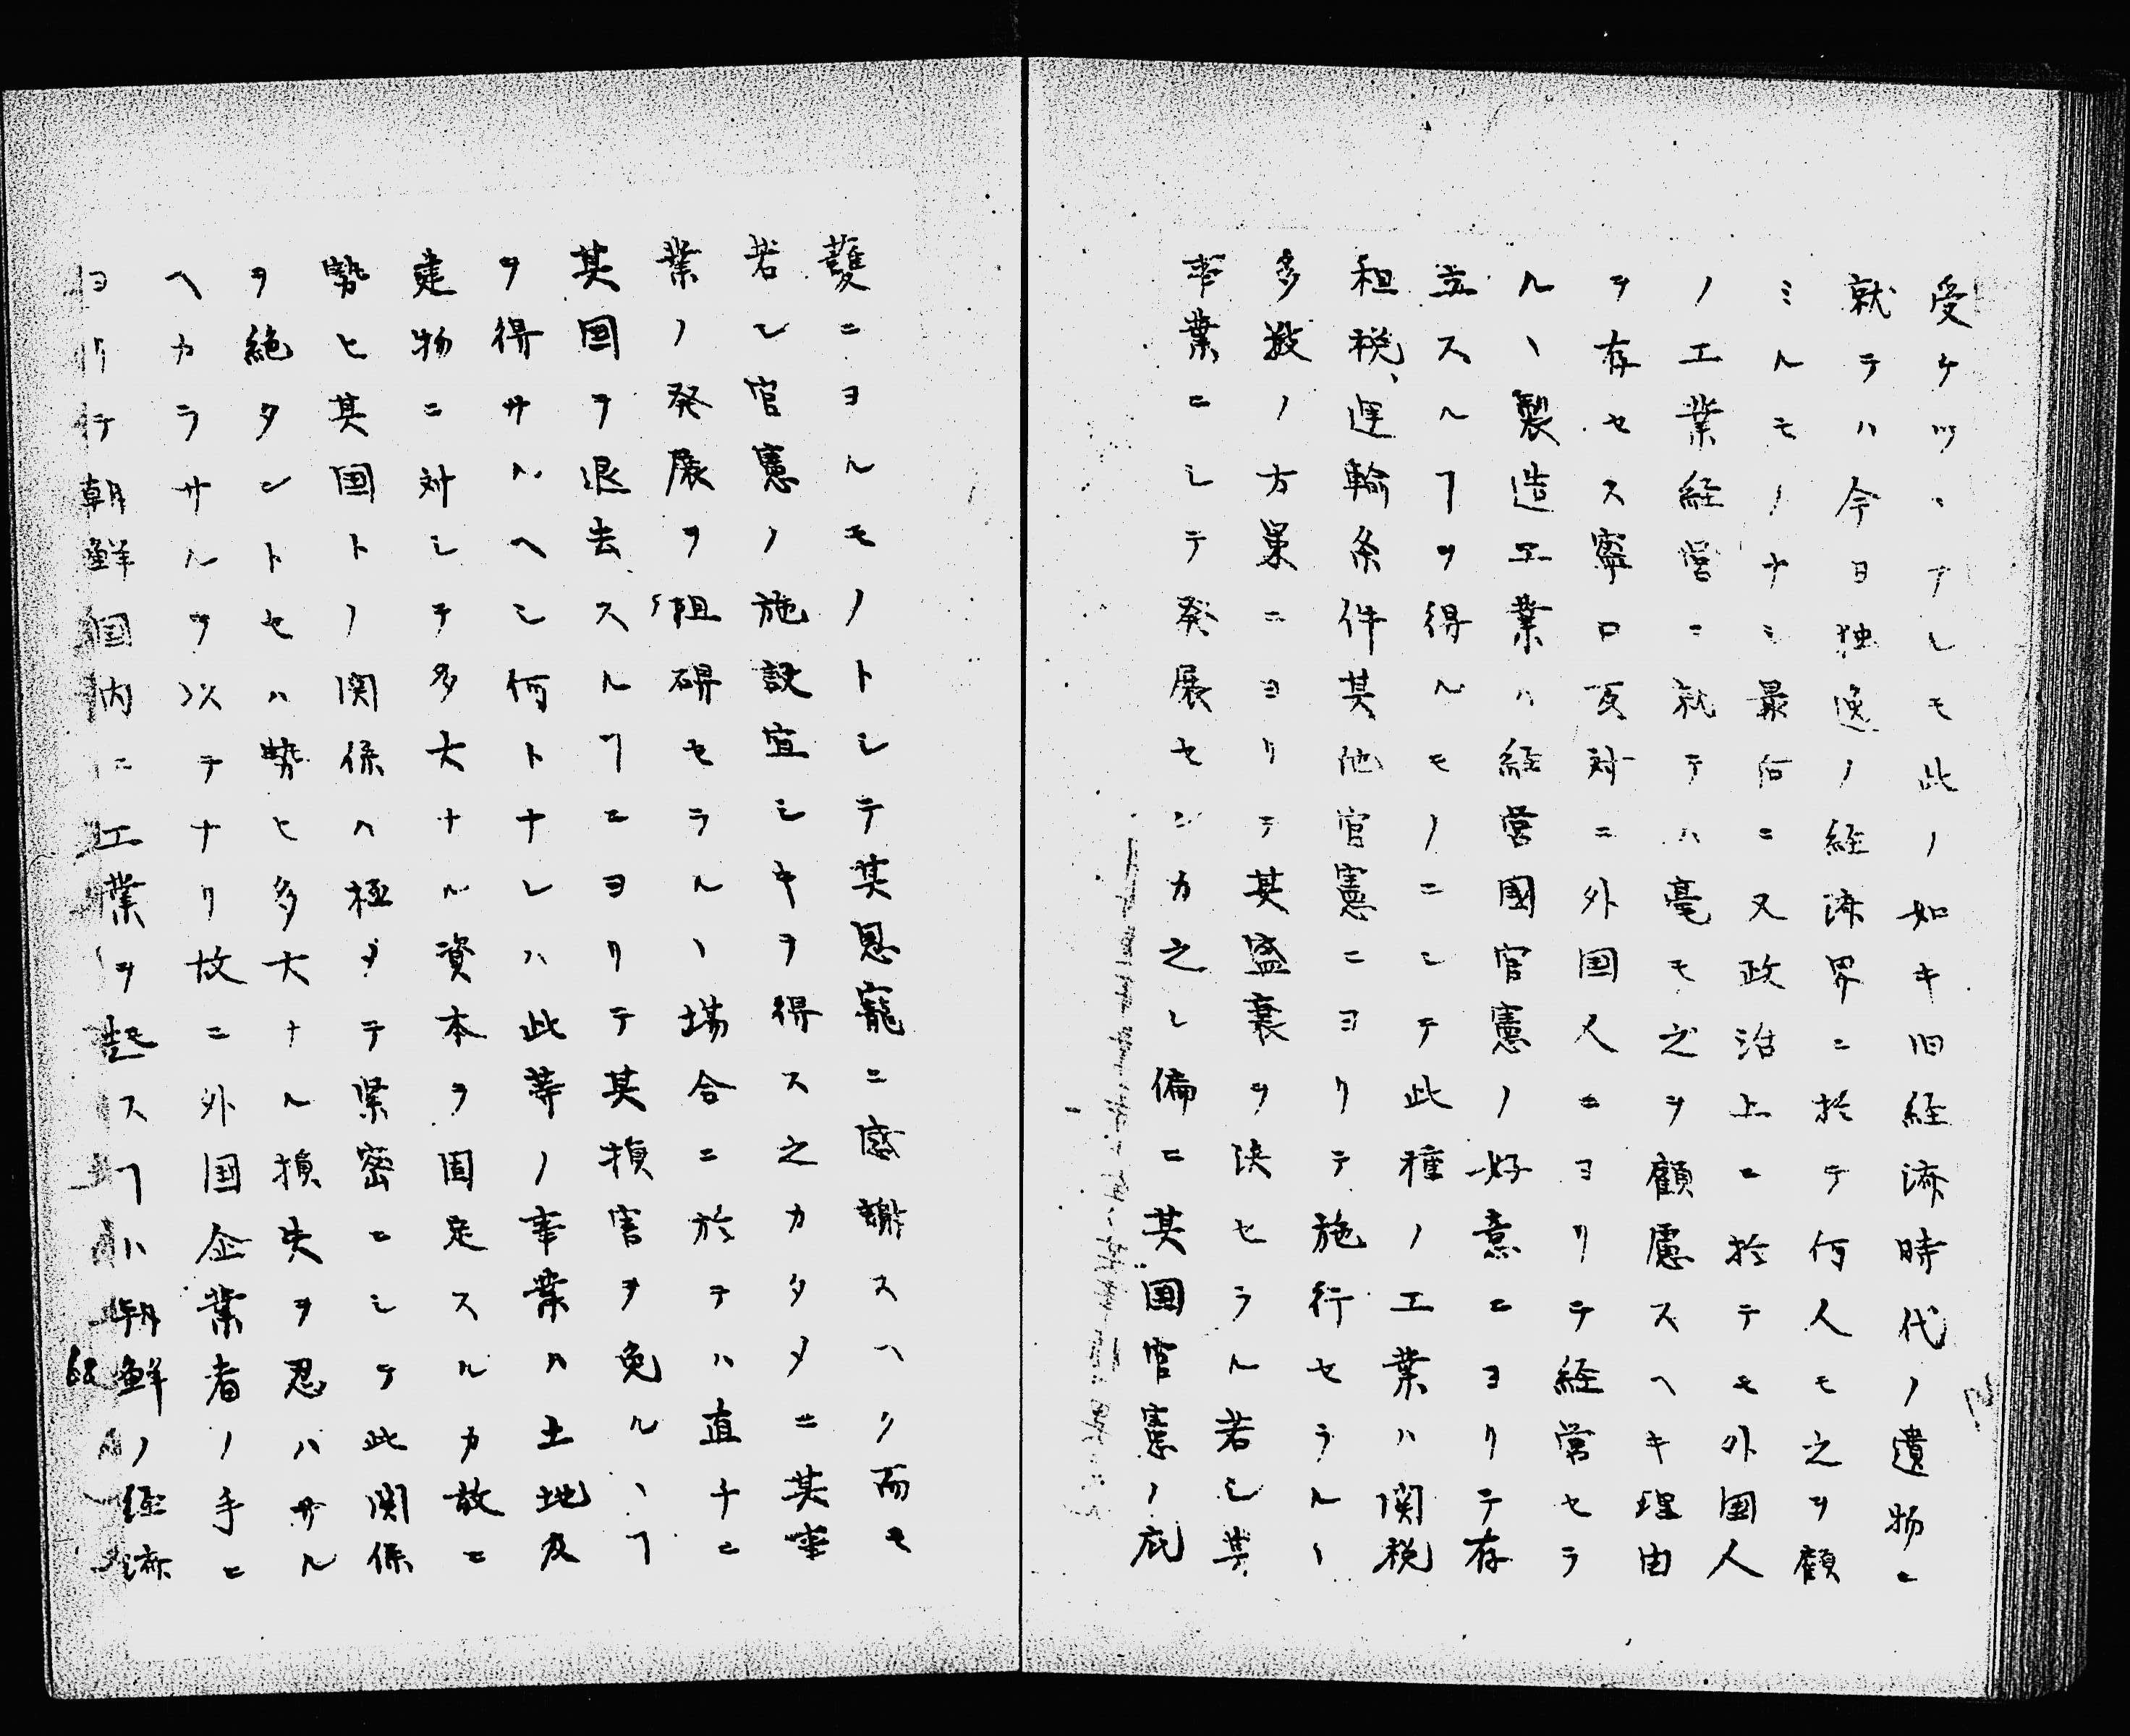 受ケツヽアレモ此ノ如キ旧経済時代ノ遺物ニ
就テハ今日独逸ノ経済界ニ於テ何人モ之ヲ顧
ミルモノナシ最后ニ又政治上ニ於テモ外国人
ノ工業経営ニ就テハ毫モ之ヲ顧慮スヘキ理由
ヲ存セス寧ロ反対ニ外国人ニヨリテ経営セラ
ルヽ製造工業ハ経営國官憲ノ好意ニヨリテ存
立スルヿヲ得ルモノニシテ此種ノ工業ハ関税
租税、運輸条件其他官憲ニヨリテ施行セラルヽ
多数ノ方策ニヨリテ其盛衰ヲ決セラル若シ其
事業ニシテ発展センカ之レ偏ニ其国官憲ノ庇
護ニヨルモノトシテ其恩寵ニ感謝スヘク而モ
若シ官憲ノ施設宜シキヲ得ス之カタメニ其事
業ノ発展ヲ阻碍セラルヽ場合ニ於テハ直チニ
其国ヲ退去スルヿニヨリテ其損害ヲ免ルヽヿ
ヲ得サルヘシ何トナレハ此等ノ事業ハ土地及
建物ニ対シテ多大ナル資本ヲ固定スルカ故ニ
勢ヒ其国トノ関係ハ極メテ緊密ニシテ此関係
ヲ絶タントセハ勢ヒ多大ナル損失ヲ忍ハサル
ヘカラサルヲ以テナリ故ニ外国企業者ノ手ニ
ヨリテ朝鮮国内ニ工業ヲ起スヿハ朝鮮ノ経済